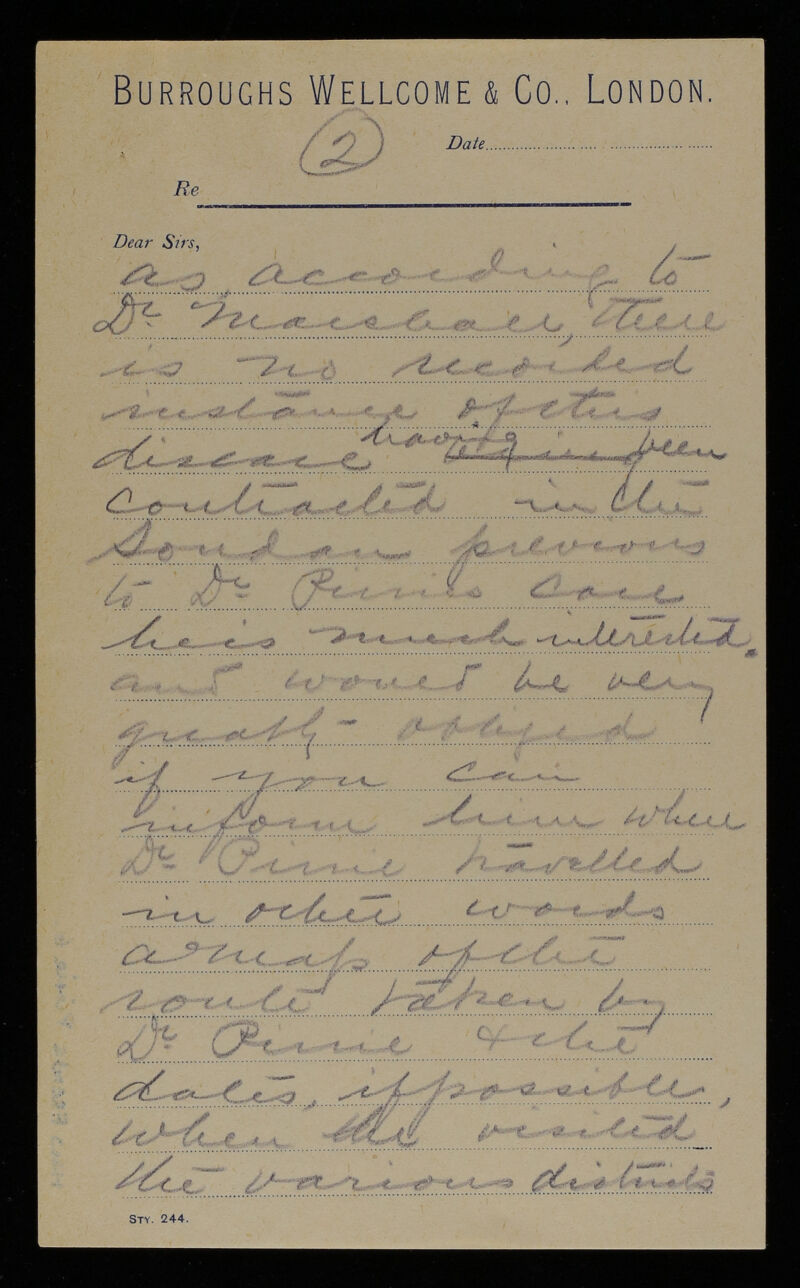 BURROUGHS WELLCOME & CO., LONDON.
(2)
Date
Re
Dear Sirs,
as according to
Dr. Marshall, there
is no recorded
instance of this
disease having been
contracted in the
Soudan previous
to Dr. Pirries case
he is much interested.
and would be very
greatly obliged
if you can
inform him where
Dr. Pirrie travelled
in other words
a map of the
route taken by
Dr. Pirrie & the
dates, if possible,
when he visited
the various districts
STY. 244.